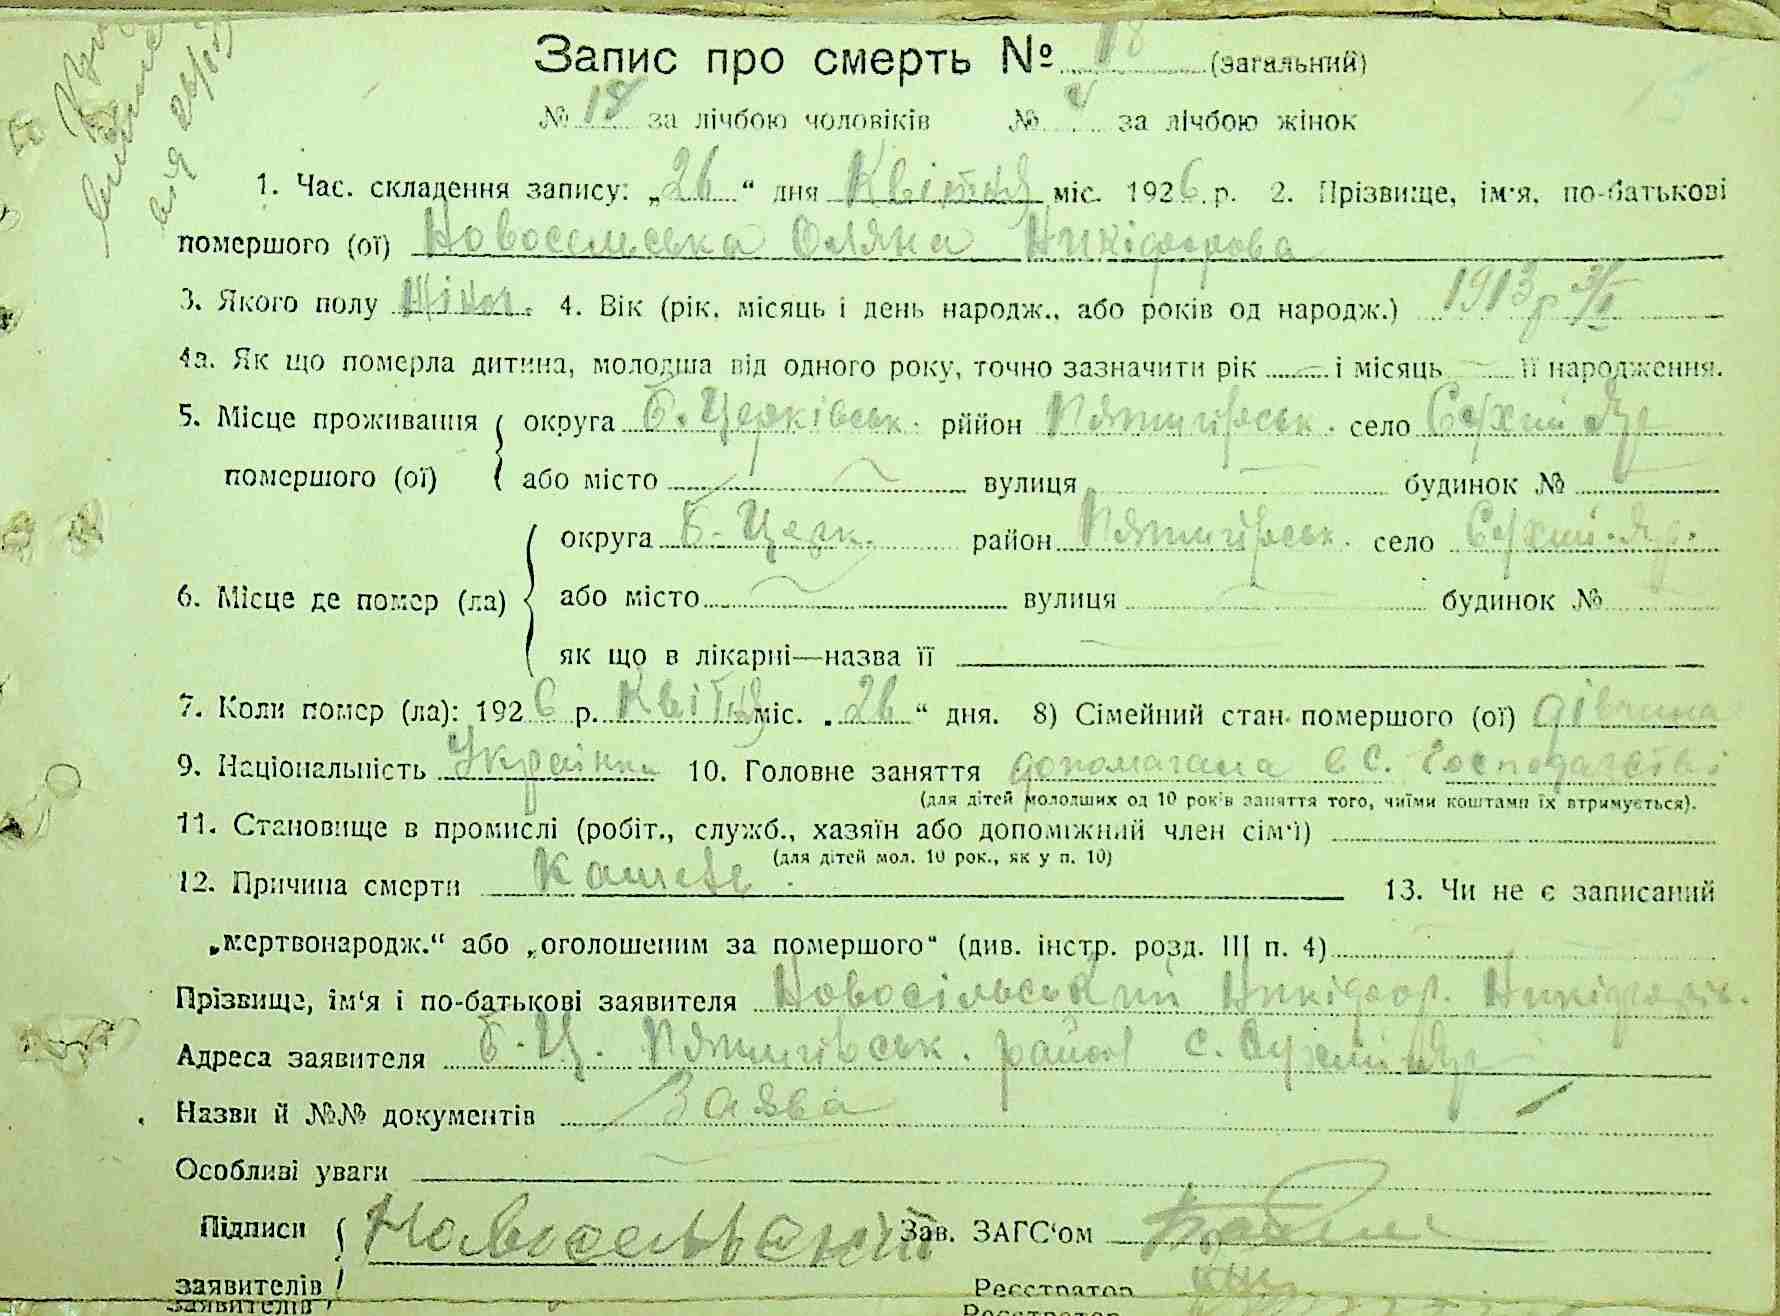 Запис про смерть № 18 (загальний)
№ 18 за лічбою чоловіків № за лічбою жінок
1. Час. складення запису: „26“ дня Квітня міс. 1926 р. 2. Прізвище, ім'я, по-батькові
помершого (ої) Новосельська Оляна Никіфорова
3. Якого полу Жіноч. 4. Вік (рік, місяць і день народж., або років од народж.) 1913 р
4а. Як що померла дитина, молодша від одного року, точно зазначити рік — і місяць — її народження.
5. Місце проживання округа Б. Церківськ. рййон Пятигірськ. село Сухий Яр
помершого (ої) або місто — вулиця — будинок №
округа Б-Церк. район Пятигірськ. село Сухий-Яр.
6. Місце де помер (ла) або місто — вулиця — будинок №
як що в лікарні—назва її —
7. Коли помер (ла): 1926 р. Квітня міс. „26“ дня. 8) Сімейний стан помершого (ої) дівчина
9. Національність Українка 10. Головне заняття допомагала в С. Господарстві
(для дітей молодших од 10 років заняття того, чиїми коштами їх втримується).
11. Становище в промислі (робіт., служб., хазяїн або допоміжний член сім'ї)
(для дітей мол. 10 рок., як у п. 10)
12. Причина смерти Кашель 13. Чи не є записаний
„мертвонародж.“ або „оголошеним за помершого“ (див. інстр. розд. III п. 4)
Прізвище, ім'я і по-батькові заявителя Новосільський Никіфор. Никіфорів.
Адреса заявителя Б. Ц. Пятигівськ. район с. Сухий Яр
Назви й №№ документів Заява
Особливі уваги —
Підписи Новосельский Зав. ЗАГС'ом
заявителів Реєстратор
заявителів Реєстратор